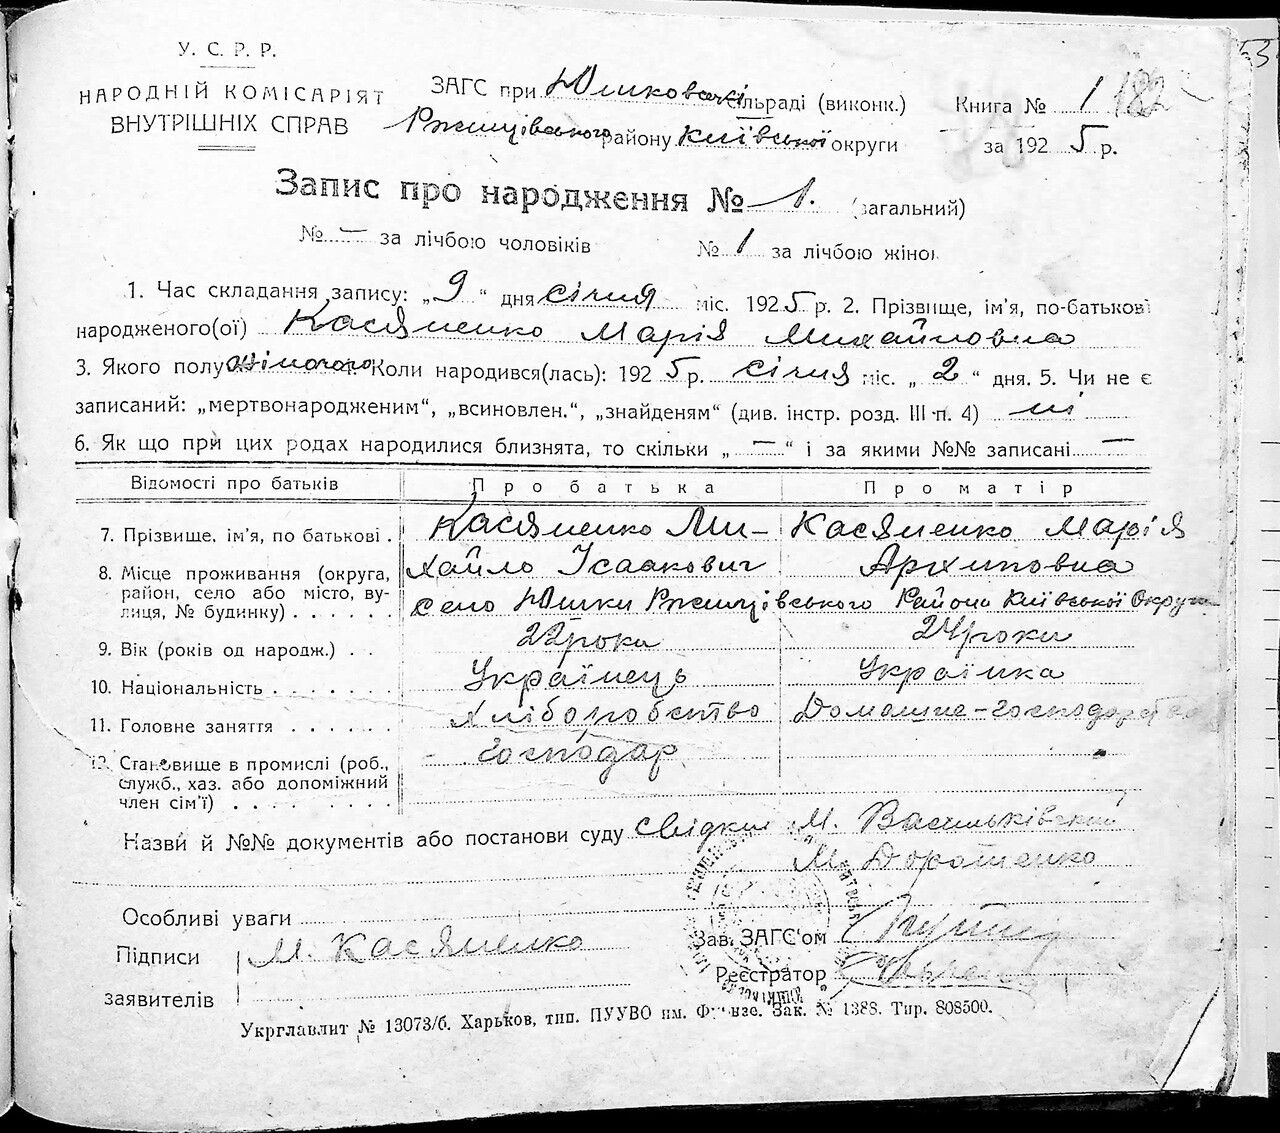 53
У. С. Р. Р.
НАРОДНІЙ КОМІСАРІЯТ
ВНУТРІШНІХ СПРАВ
ЗАГС при Юшковскі сільраді (виконк.)
Ржищівського району Київської округи
Книга № 1 182
за 1925 р.
Запис про народження № 1. (загальний)
№ — за лічбою чоловіків № 1 за лічбою жінок
1. Час складання запису: „9“ дня січня міс. 1925 р. 2. Прізвище, ім'я, по-батькові
народженого(ої) Касяненко Марія Михайловна
3. Якого полу жіночого Коли народився(лась): 1925 р. січня міс. „2“ дня. 5. Чи не є
записаний: „мертвонародженим“, „всиновлен.“, „знайденям“ (див. інстр. розд. III п. 4) ні
6. Як що при цих родах народилися близнята, то скільки „—“ і за якими №№ записані —
Відомості про батьків Про батька Про матір
7. Прізвище, ім'я, по батькові . Касяненко Ми- Касяненко Марія
хайло Ісаакович Архиповна
8. Місце проживання (округа, район, село або місто, вулиця, № будинку) . . . . . . село Юшки Ржищівського Району Київської Округи
9. Вік (років од народж.) . . 22 роки 24 роки
10. Національність . . . . . . . Українець Українка
11. Головне заняття . . . . . . Хліборобство Домашнє-господарство
12. Становище в промислі (роб., служб., хаз. або допоміжний член сім'ї) . . . . . . . . . Господар
Назви й №№ документів або постанови суду свідки М. Васильківський
М. Дорошенко
Особливі уваги
Підписи М. Касяненко Зав. ЗАГС'ом
заявителів Реєстратор
Укрглавлит № 13073/б. Харьков, тип. ПУУВО им. Фрунзе. Зак. № 1388. Тир. 808500.